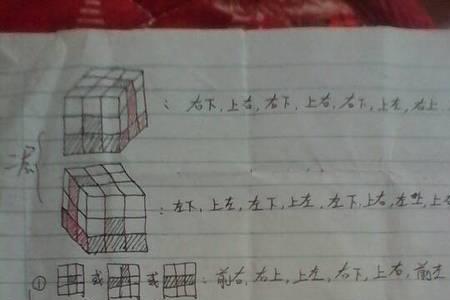 : 右下,上右,右下,上右,右下,上左,右上
二层
: 左下,上左,左下,上左,左下,上右,左上,上
① 或 或 : 前右,右上,上左,右下,上右,前左